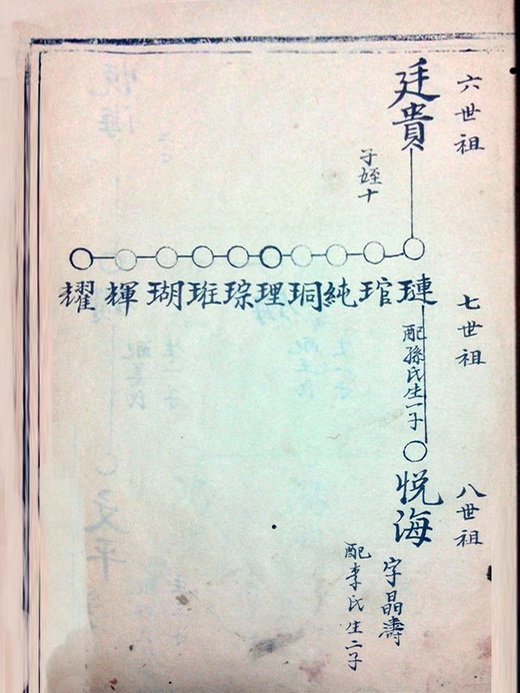 六世祖
廷貴
子姪十
七世祖
璉
琯
純
珦
理
琮
班
瑚
輝
耀
配孫氏生一子
八世祖
悅海
字晶濤
配李氏生二子